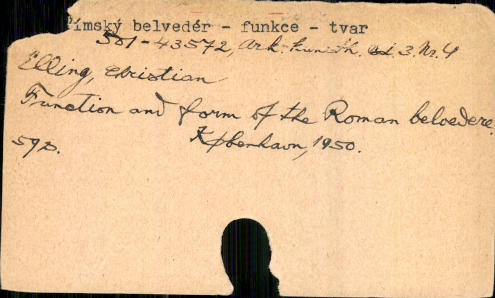 římský belvedér - funkce - tvar
501-43572, Ark. Kunsth. Bd. 3. Nr. 4
Elling, Christian
Function and form of the Roman belvedere.
59 s. København, 1950.